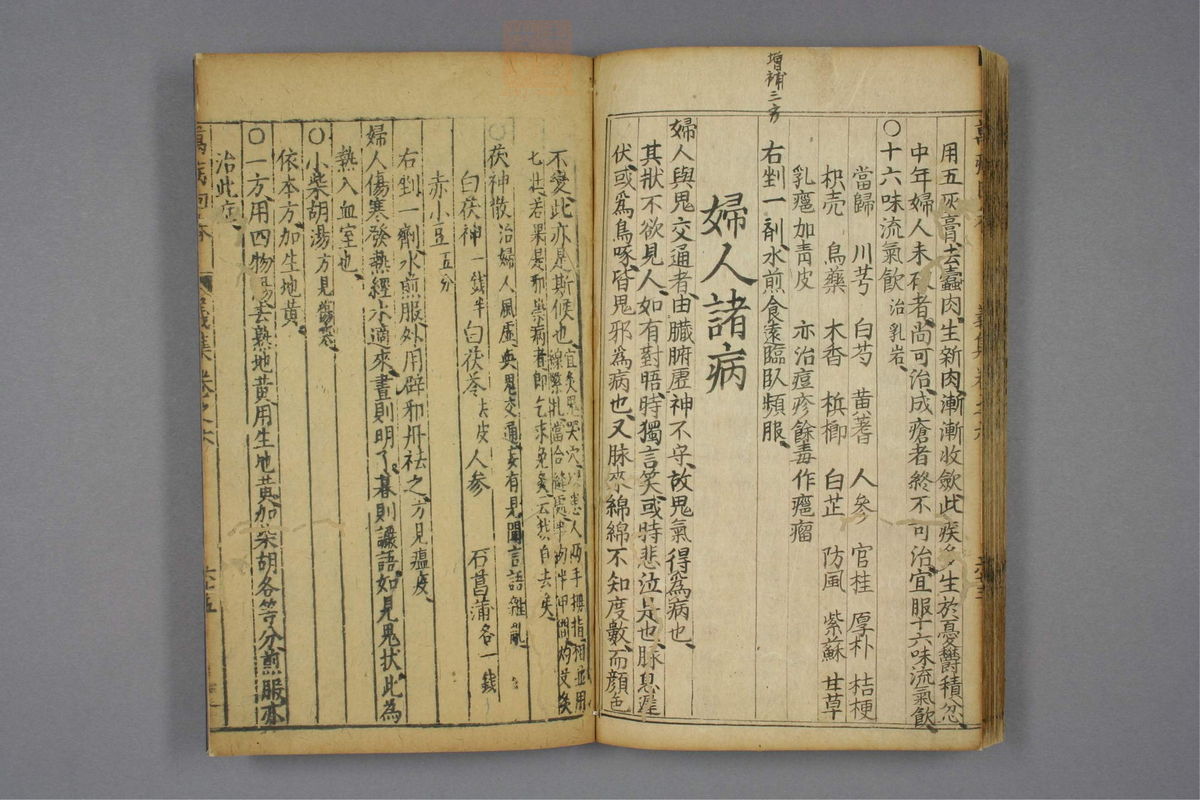 增補三方
用五灰膏去蠹肉生新肉漸漸收歛此疾多生於憂鬱積忿
中年婦人未破者尚可治成瘡者終不可治宜服十六味流氣飲
〇十六味流氣飲治乳岩
當歸 川芎 白芍 黃蓍 人參 官桂 厚朴 桔梗
枳壳 烏藥 木香 檳榔 白芷 防風 紫蘇 甘草
乳癰加青皮 亦治痘疹餘毒作癰瘤
右剉一劑水煎食遠臨臥頻服
婦人諸病
婦人與鬼交通者由臟腑虛神不守故鬼氣得為病也
其狀不欲見人如有對晤時獨言笑或時悲泣是也脉息遲
伏或為鳥啄皆鬼邪為病也又脉來綿綿不知度數而顏色
不變此亦是斯候也宜灸鬼哭穴以患人兩手拇指相並用
線縈扎當合縫處半肉半甲間灼艾灸
七壯若果是邪祟病者即乞求免灸云我自去矣
〇茯神散治婦人風虛與鬼交通妄有見聞言語雜亂
白茯神一錢半 白茯苓去皮 人參 石菖蒲各一錢
赤小豆五分
右剉一劑水煎服外用辟邪丹袪之方見瘟疫
婦人傷寒發熱經水適來晝則明了暮則譫語如見鬼狀此為
熱入血室也
〇小柴胡湯方見傷寒
依本方加生地黃
〇一方用四物湯去熟地黃用生地黃加柴胡各等分煎服亦
治此症